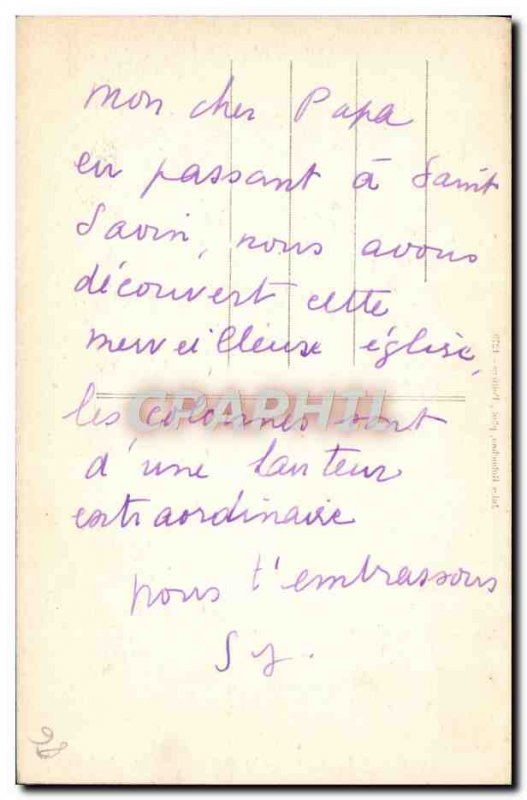 mon cher Papa
en passant à Saint
Savin, nous avons
découvert cette
merveilleuse église,
les colonnes sont
CPAPHTI
d'une hauteur
extraordinaire
nous t'embrassons